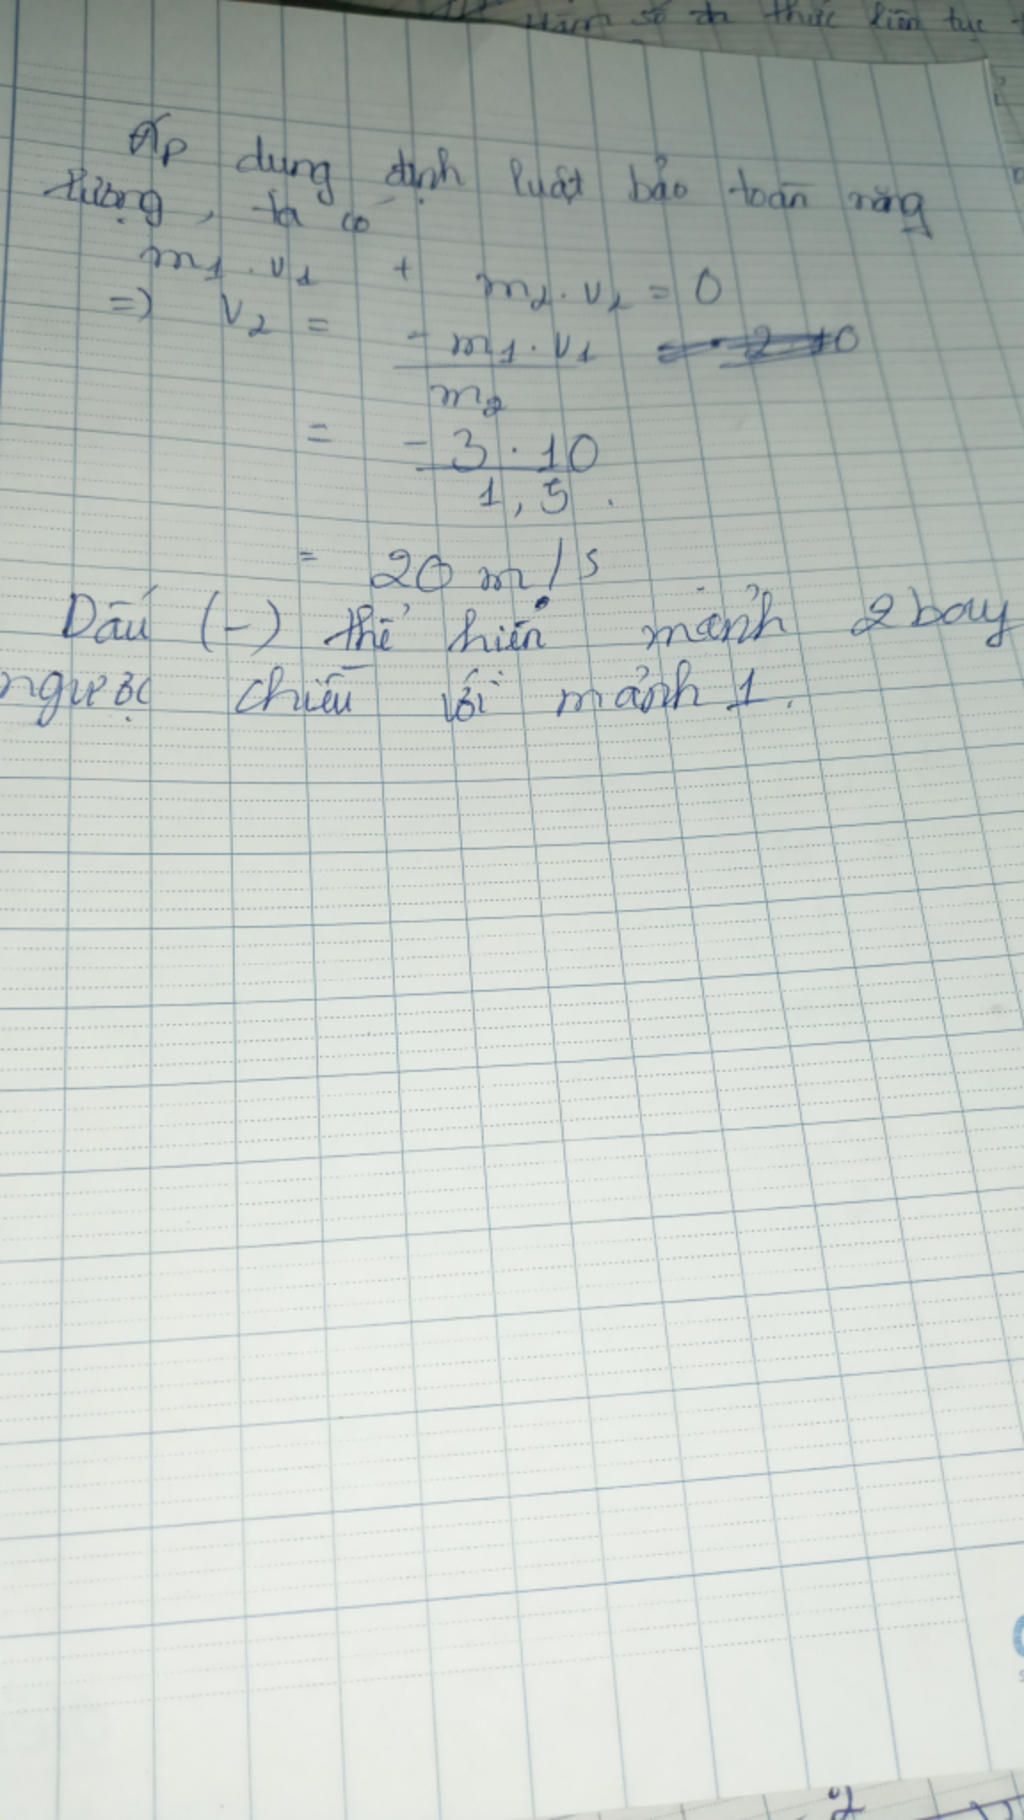 Hàm số đa thức liên tục
Áp dụng định luật bảo toàn năng
lượng, ta có
m1 . v1 + m2 . v2 = 0
=) v2 = - m1 . v1
m2
= - 3 . 10
1,5 .
= 20 m/s
Dấu (-) thể hiện mảnh 2 bay
ngược chiều với mảnh 1.